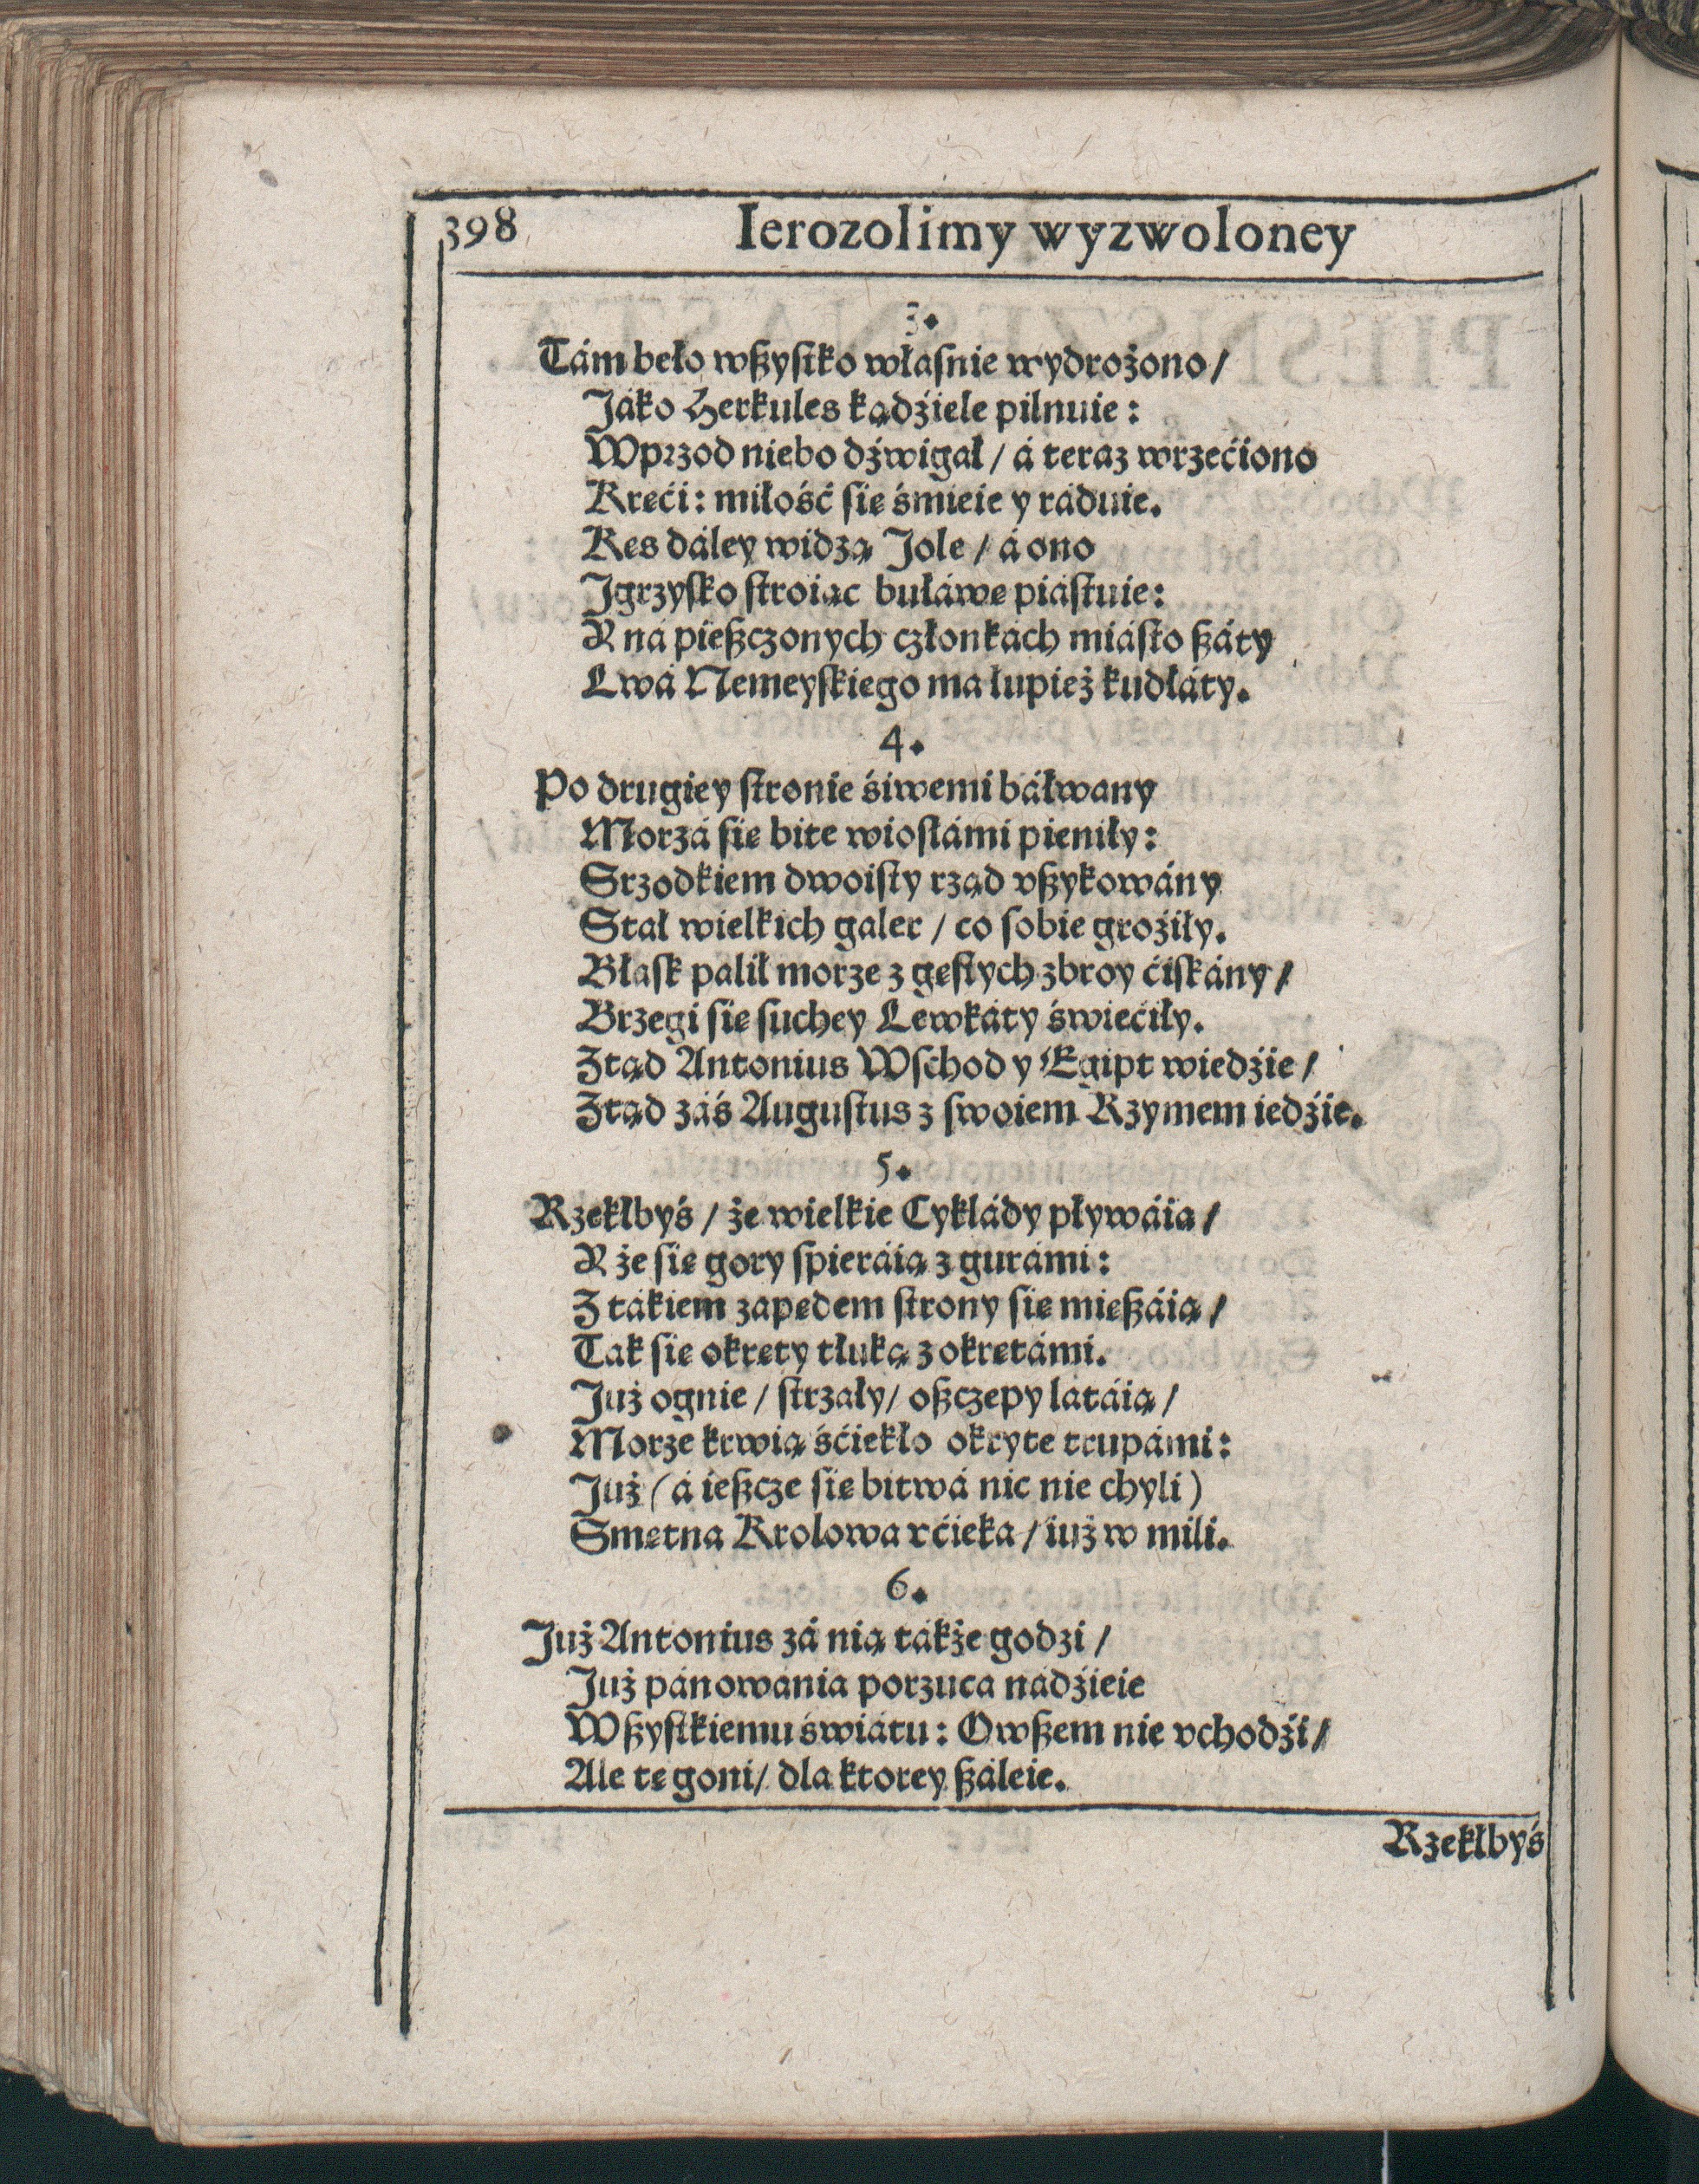 398 Ierozolimy wyzwoloney
3.
Tám beło wßyſtko właſnie wydrożono/
Jáko Herkules kądźiele pilnuie:
Wprzod niebo dźwigał/ á teraz wrzećiono
Kręći: miłość ſię śmieie y ráduie.
Kes dáley widzą Jole/ á ono
Jgrzyſko ſtroiąc buławę piáſtuie:
Y ná pießczonych członkách miáſto ßáty
Lwá Nemeyſkiego ma łupież kudłáty.
4.
Po drugiey ſtronie śiwemi báłwany
Morzá ſię bite wioſłámi pieniły:
Srzodkiem dwoiſty rząd vßykowány
Stał wielkich galer/ co ſobie groźiły.
Błaſk palił morze z gęſtych zbroy ćiſkány/
Brzegi ſię ſuchey Lewkáty świećiły.
Ztąd Antonius Wſchod y Egipt wiedźie/
Ztąd záś Auguſtus z ſwoiem Rzymem iedźie.
5.
Rzekłbyś/ że wielkie Cyklády pływáią/
Y że ſię gory ſpieráią z gurámi:
Z tákiem zapędem ſtrony ſię mießáią/
Tak ſię okręty tłuką z okrętámi.
Już ognie/ ſtrzały/ oßczepy latáią/
Morze krwią śćiekło okryte trupámi:
Już (á ießcze ſię bitwá nic nie chyli)
Smętna Krolowa vćieka/ iuż w mili.
6.
Już Antonius zá nią tákże godzi/
Już pánowánia porzuca nádźieie
Wßyſtkiemu świátu: Owßem nie vchodźi/
Ale tę goni/ dla ktorey ßáleie.
Rzekłbyś